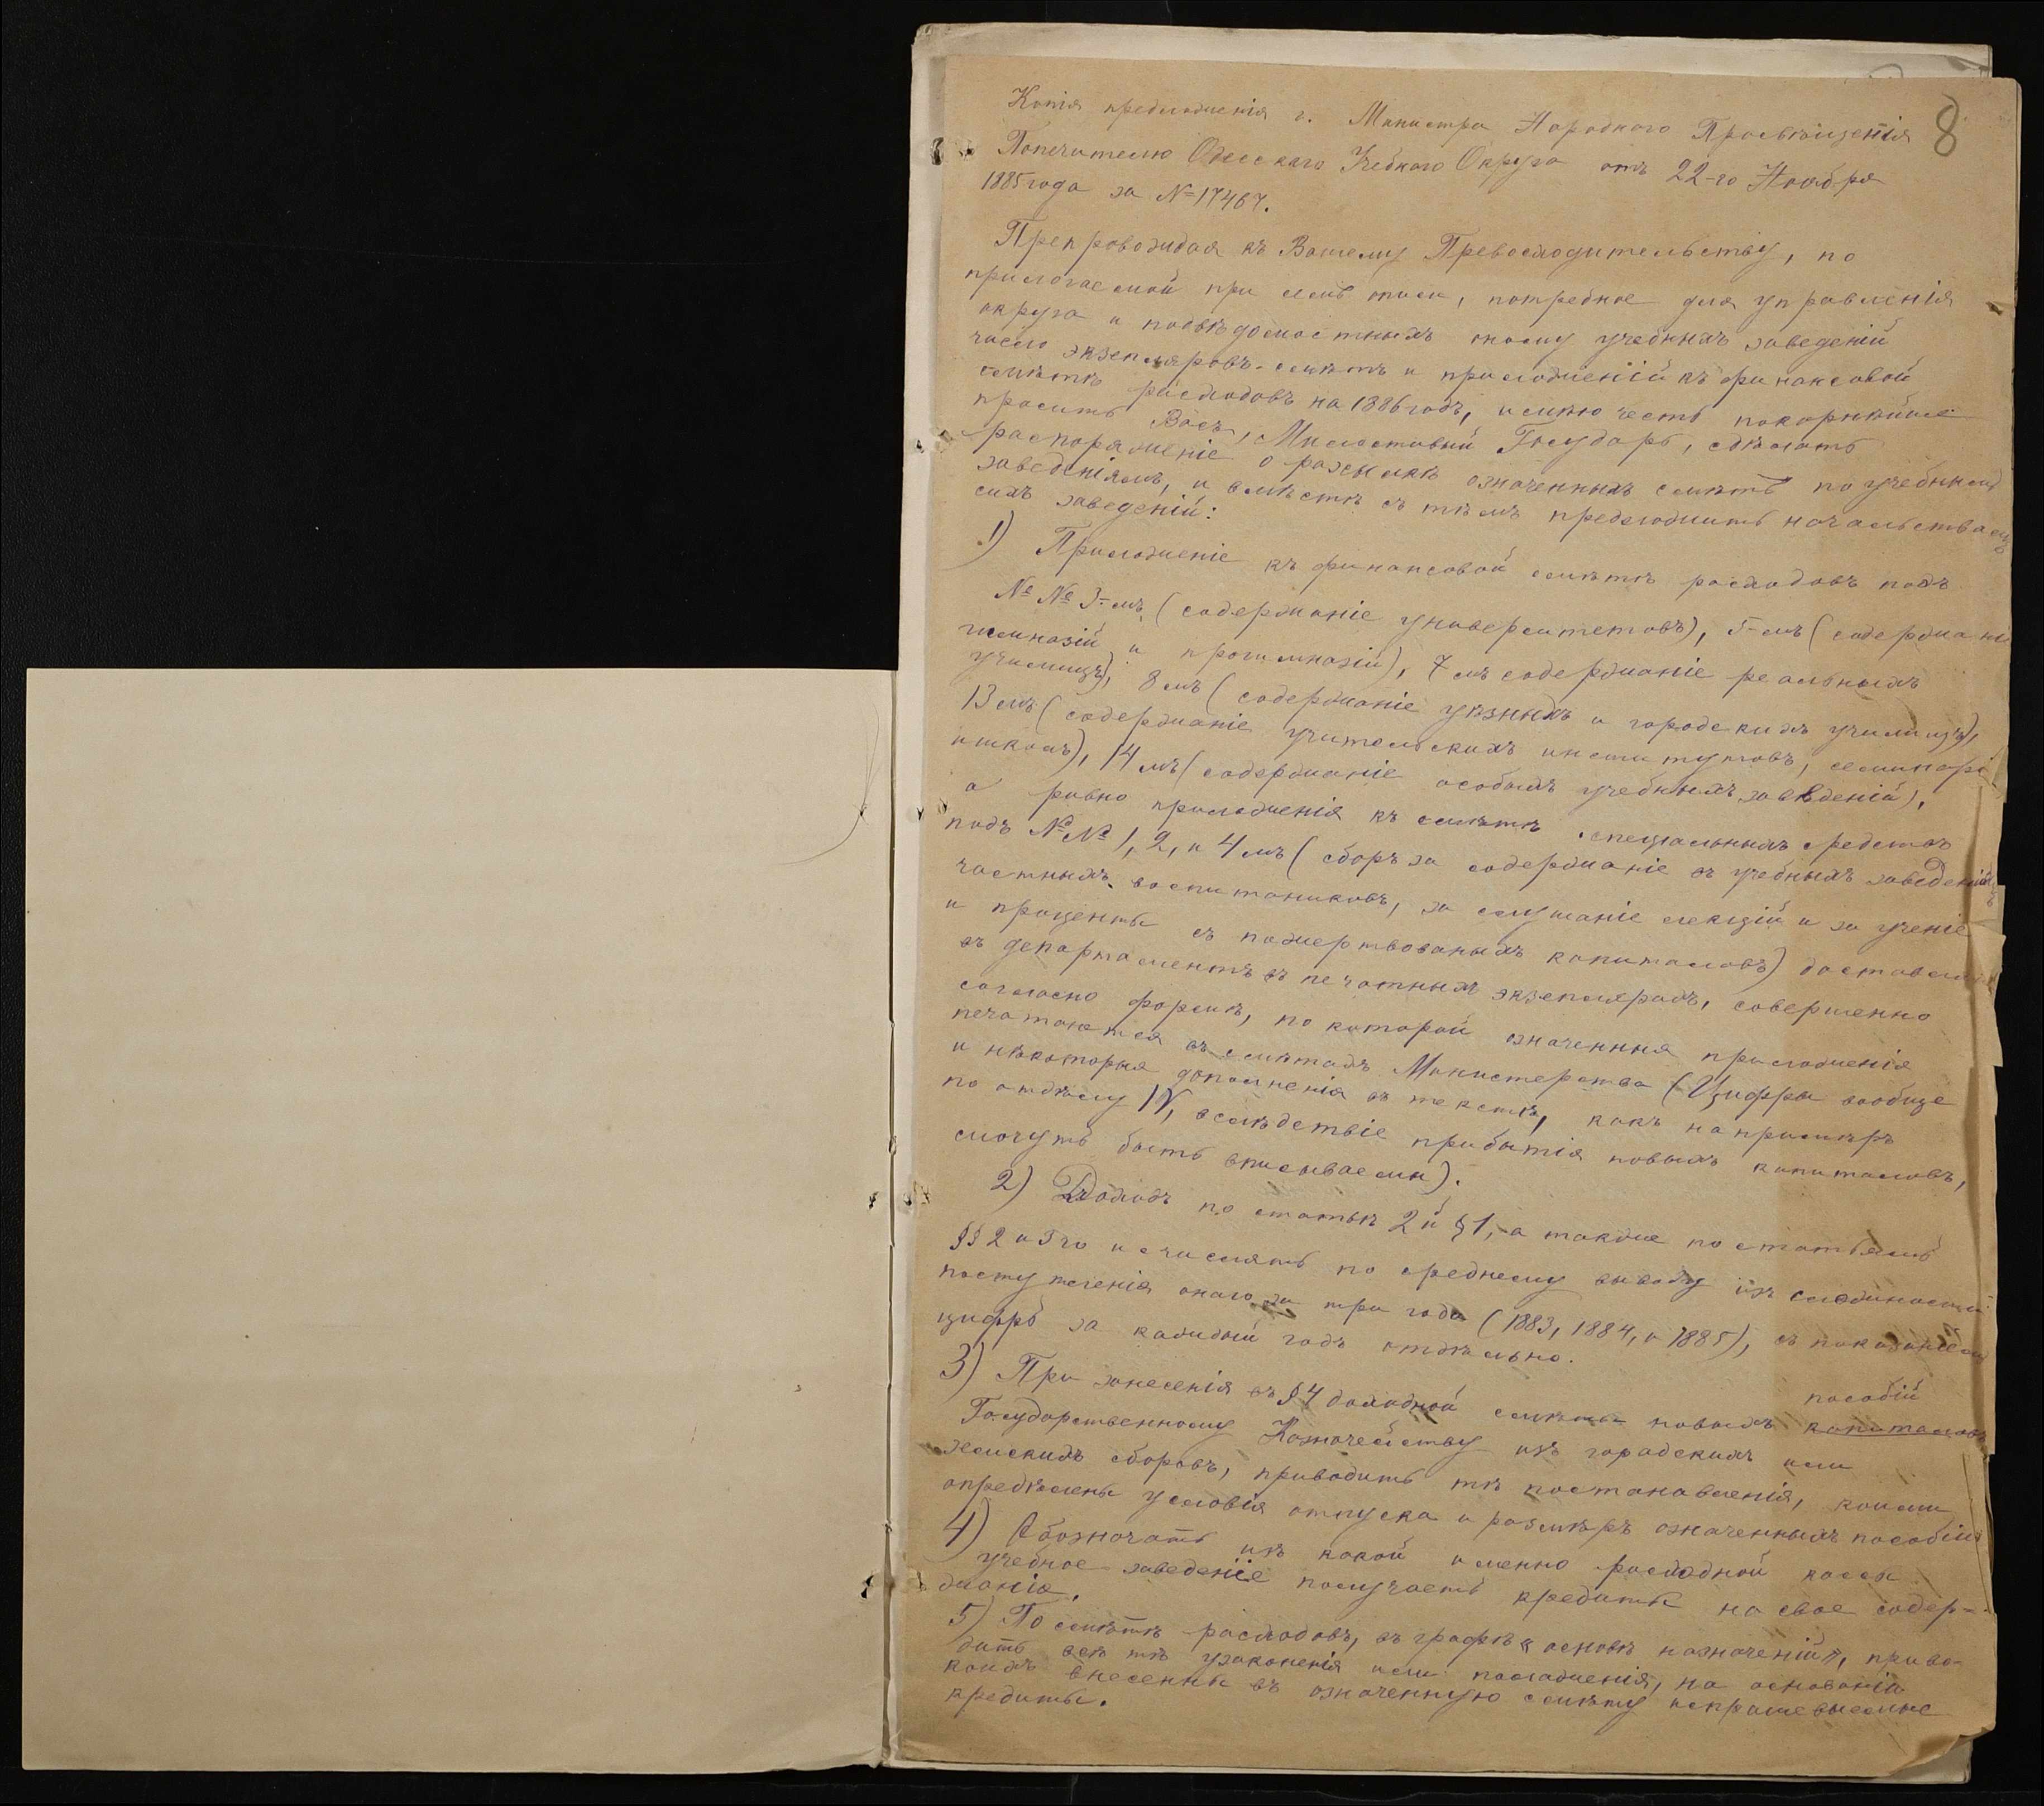 8
Копія предложенія г. Министра Народнаго Просвѣщенія
Попечителю Одесскаго Учебнаго Округа отъ 22-го Ноября
1885 года за №17467.
Препровождая къ Вашему Превосходительству, по
прилагаемой при семъ описи, потребное для управленія
округа и подвѣдомостныхъ оному учебныхъ заведеній
число экземпляровъ смѣтъ и приложеній къ финансовой
смѣтѣ расходовъ на 1886 годъ, имѣю честь покорнѣйше
просить Васъ, Милостивый Государь, сдѣлать
распоряженіе о разсылкѣ означенныхъ смѣтъ по учебнымъ
заведеніямъ, и вмѣстѣ съ тѣмъ предложить начальствамъ
сихъ заведеній:
1) Приложеніе къ финансовой смѣтѣ расходовъ подъ
№№ 3-мъ (содержаніе университетовъ), 5-мъ (содержаніе
гимназій и прогимназій), 7 мъ содержаніе реальныхъ
училищъ), 8 мъ (содержаніе уѣзныхъ и городскихъ училищъ),
13 мъ (содержаніе учительскихъ институтовъ, семинарі
и школъ), 14 мъ (содержаніе особыхъ учебныхъ заведеній),
а равно приложенія къ смѣтѣ спеціальныхъ средствъ
подъ №№ 1, 2, и 4 мъ (сборъ за содержаніе въ учебныхъ заведеніяхъ
частныхъ воспитаниковъ, за слушаніе лекцій и за ученіе
и проценты съ пожертвованыхъ капиталовъ) доставлять
въ департаментъ въ печатныхъ экземплярахъ, совершенно
согласно формѣ, по которой означенныя приложенія
печатаются въ смѣтахъ Министерства (Цифры вообще
и нѣкоторыя дополненія въ текстѣ, какъ напримѣръ
по отдѣлу IV, вслѣдствіе прибытія новыхъ капиталовъ,
могутъ быть вписываемы).
2) Доходъ по статьѣ 2 й § 1, а также по статьямъ
§§ 2 и 3 го исчислять по среднему выводу изъ сложности
поступленія онаго за три года (1883, 1884, и 1885), съ показаніемъ
цифръ за каждый годъ отдѣльно.
3) При занесенія въ § 4 доходной смѣты новыхъ капиталовъ пособій
Государственному Казначейству изъ городскихъ или
земскихъ сборовъ, приводить тѣ постановленія, коими
опредѣлены условія отпуска и размѣръ означенныхъ пособій
4) Обозначать изъ какой именно расходной кассы
учебное заведеніе получаетъ кредиты на свое содер-
жаніе.
5) По смѣтѣ расходовъ, въ графѣ "основѣ назначеній", приво-
дить всѣ тѣ узаконенія или положенія, на основаніи
коихъ внесены въ означенную смѣту испрашиваемые
кредиты.